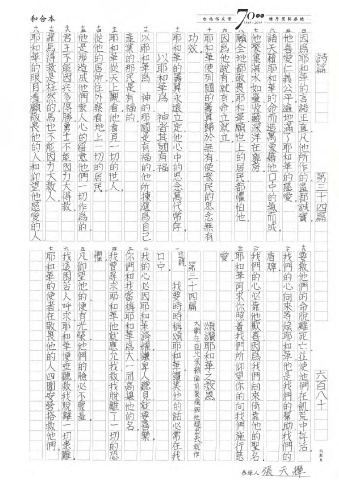 和合本
70
詩篇 第三十四篇 六百八十
四 因為耶和華的言語正直凡他所作的盡都誠實
五 他喜愛仁義公平遍地滿了耶和華的慈愛
六 諸天藉耶和華的命而造萬象藉他口中的氣而成
七 他聚集海水如壘收藏深洋在庫房
八 願全地都敬畏耶和華願世上的居民都懼怕他
九 因為他說有就有命立就立
十 耶和華使列國的籌算歸於無有使眾民的思念無有
功效
耶和華的籌算永遠立定他心中的思念萬代常存
以耶和華為神者其國有福
以耶和華為 神的那國是有福的他所揀選為自己
產業的那民是有福的
耶和華從天上觀看他看見一切的世人
從他的居所往外察看地上一切的居民
他是那造成他們眾人心的留意他們一切作為的
君王不能因兵多得勝勇士不能因力大得救
靠馬得救是枉然的馬也不能因力大救人
耶和華的眼目看顧敬畏他的人和仰望他慈愛的人
要救他們的命脫離死亡並使他們在飢荒中存活
我們的心向來等候耶和華他是我們的幫助我們的
盾牌
我們的心必靠他歡喜因為我們向來倚靠他的聖名
耶和華阿求你照著我們所仰望你的向我們施行慈
愛
頌讚耶和華之救恩
第三十四篇
我要時時稱頌耶和華讚美他的話必常在我
口中
我的心必因耶和華誇耀謙卑人聽見就要喜樂
你們和我當稱耶和華為大一同高舉他的名
我曾尋求耶和華他就應允我救我脫離了一切的恐
懼
凡仰望他的便有光榮他們的臉必不蒙羞
我這困苦人呼求耶和華便垂聽救我脫離一切患難
耶和華的使者在敬畏他的人四圍安營搭救他們